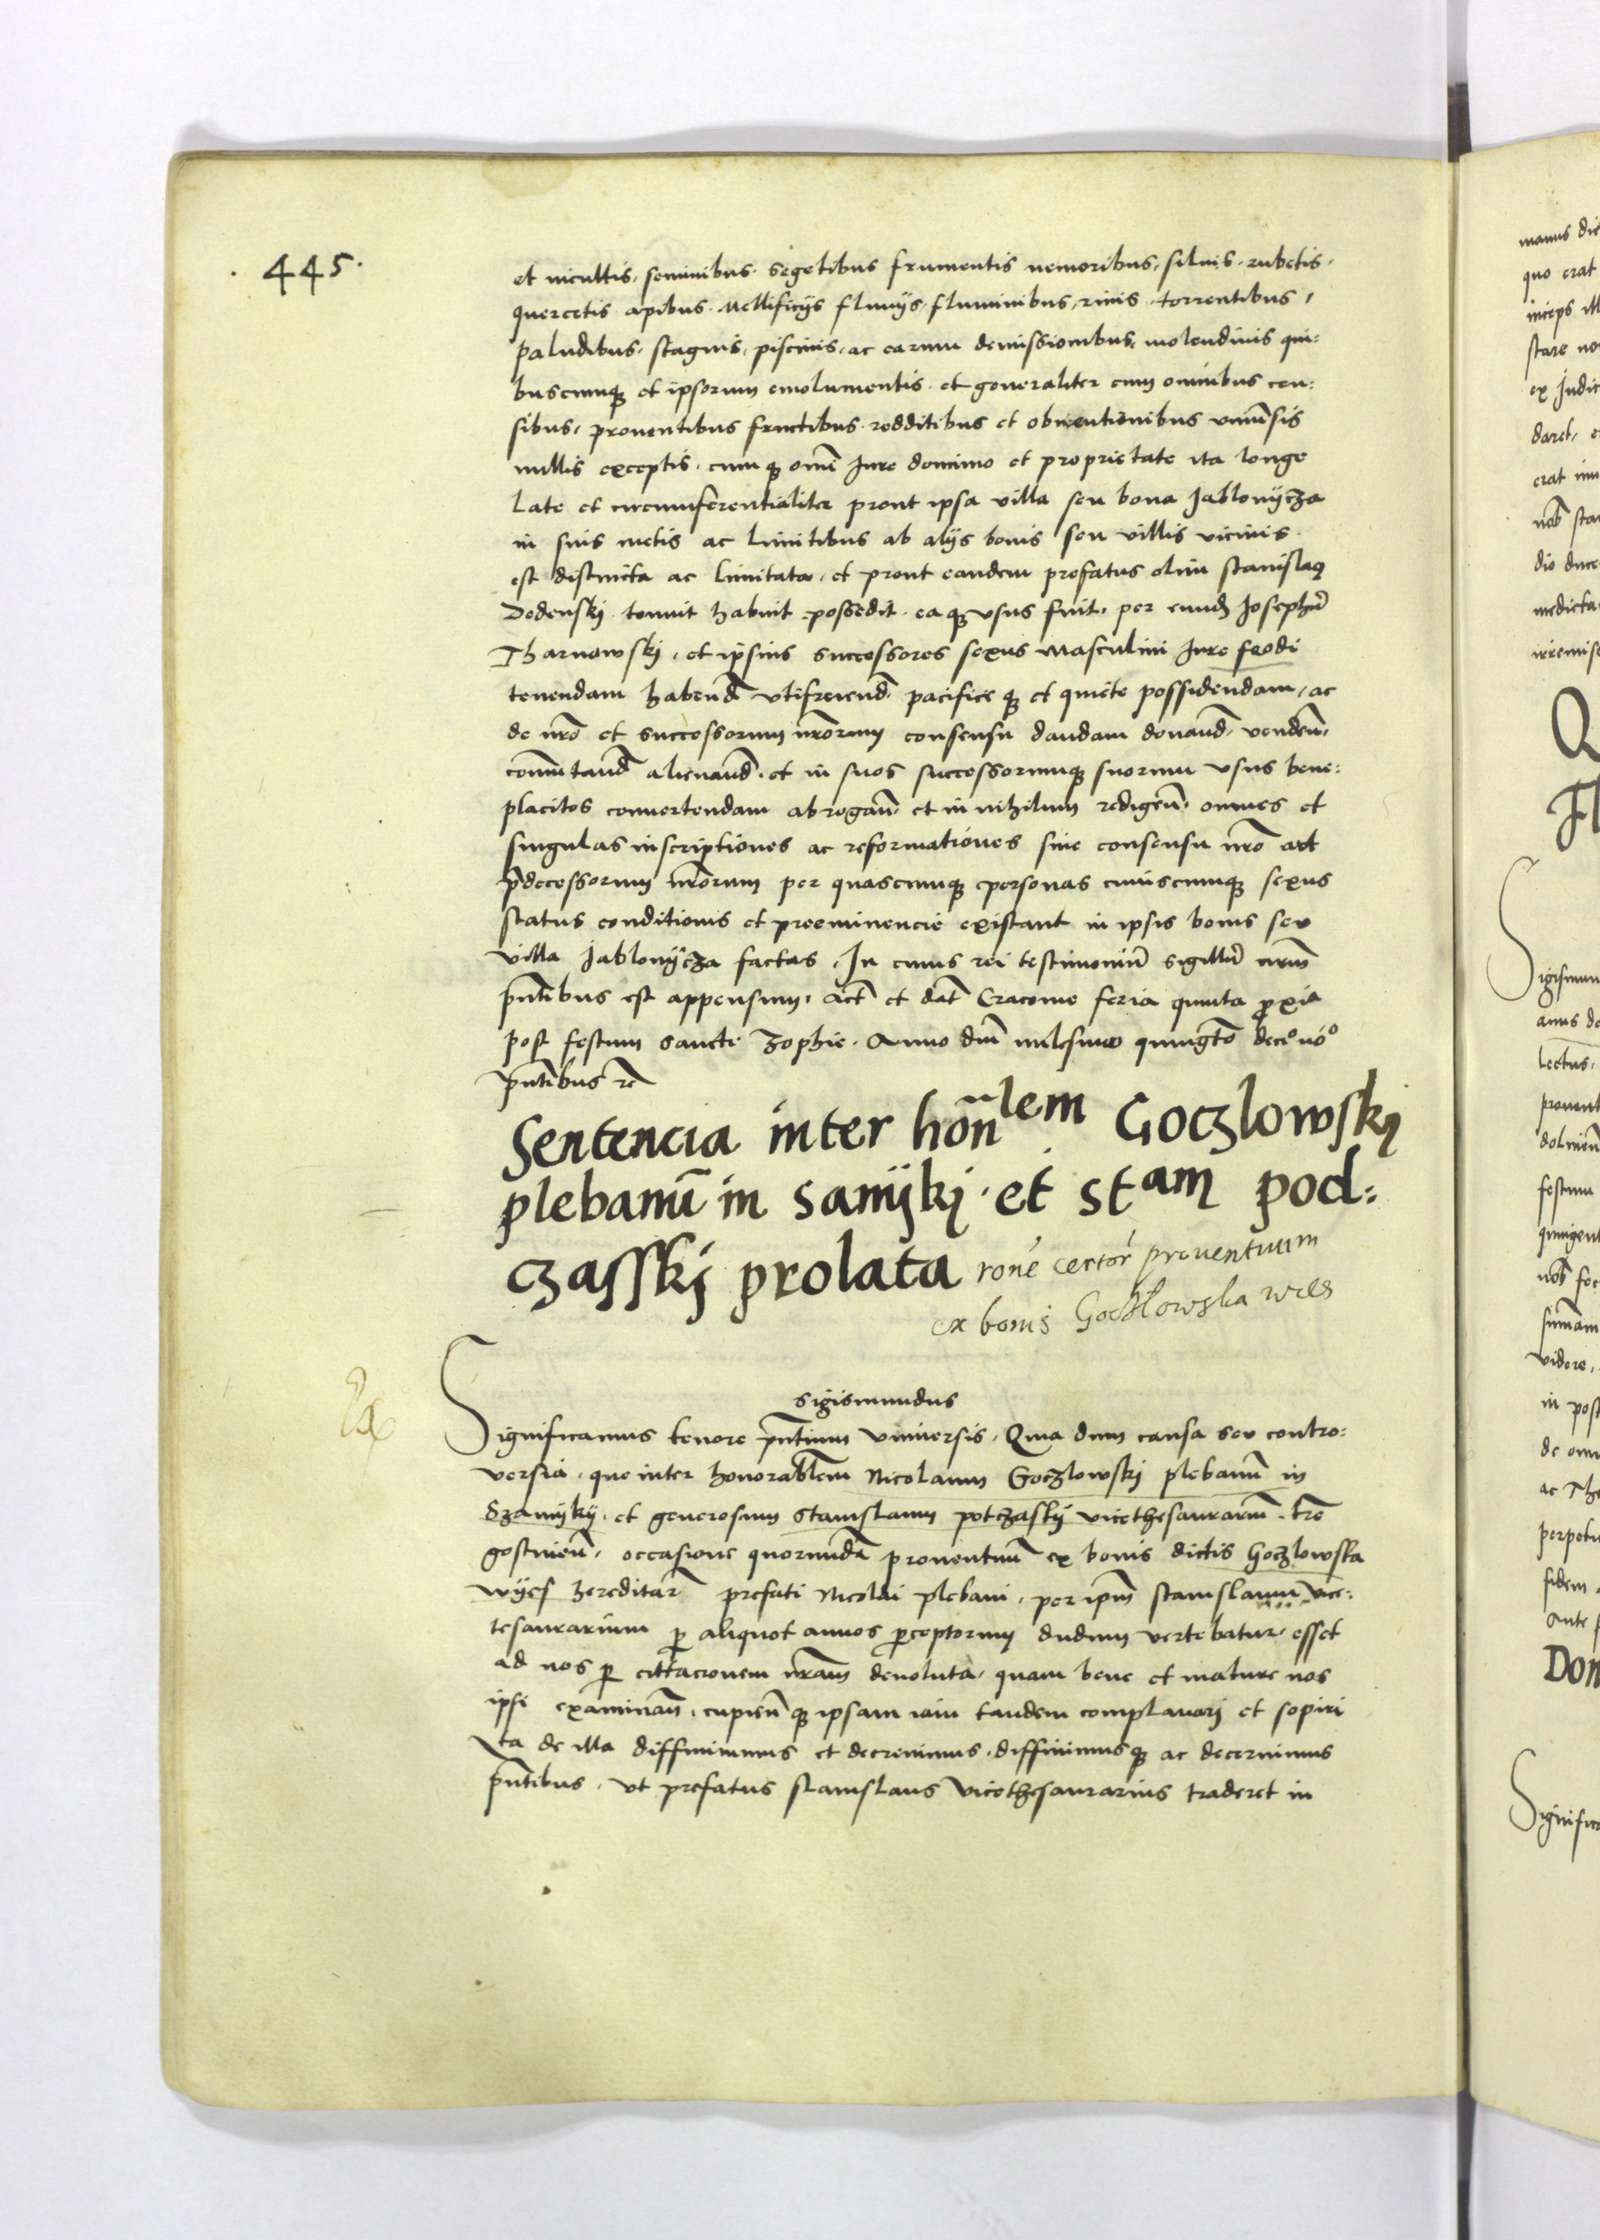 . 445 .
et incultis, seminibus. segetibus frumentis nemoribus, siluis. rubetis.
quercetis apibus. Mellificijs fluuijs. fluminibus, riuis. torrentibus,
paludibus, stagnis, piscinis, ac earum demissionibus, molendinis qui:
buscumq et ipsorum emolumentis. et generaliter cum omnibus cen:
sibus, prouentibus fructibus redditibus et obuentionibus vniuersis
nullis exceptis. cumq omi Jure dominio et proprietate ita longe
Late et circumferentialiter prout ipsa villa seu bona Jablonijcza
in suis metis ac limitibus ab alijs bonis seu villis vicinis
est distincta ac limitata. et prout eandem prefatus olim Stanislaq
Dedenski tenuit habuit possedit. eaq vsus fuit. per eund Josephu
Tharnowski. et ipsius successores sexus Masculini Jure feodi
tenendam habend vtifruend pacificeq et quiete possidendam, ac
de nro et successorum nrorum consensu dandam donand. venden,
comutand alienand. et in suos successorumq suorum vsus bene:
placitos conuertendam abrogan et in nihilum redigen. omnes et
singulas inscriptiones ac reformationes sine consensu nro aut
pdecessorum nrorum per quascumq personas cuiuscumq sexus
status conditionis et preeminencie existant in ipsis bonis seu
villa Jablonijcza factas. In cuius rei testimoniu sigillu nrum
pntibus est appensum. Act et dat Cracouie feria quinta proxia
post festum sancte Zophie. Anno dni milesimo quingto deco nono
pntibus rc
Sentencia inter honlem Goczlowskj
plebanu in Sanijkj. et Stam pod:
czasskj prolata rone certor prouentuum
ex bonis Goczlowska wies
Sigismundus
Significamus tenore pntium Vniuersis. Quia dum causa seu contro:
versia. que inter honorablem Nicolaum Goczlowskj plebanu in
Szanijkij. et generosum Stanislaum potczaskij vicethesaurariu. tre
gostinien. occasione quorunda prouentuu ex bonis dictis Goczlowska
wijes hereditar prefati Nicolai plebani. per ipm Stanislaum vice:
tesaurarium p aliquot annos pceptorum dudum vertebatur. esset
ad nos p cittacionem nram deuoluta. quam bene et mature nos
ipsi examinan. cupienq ipsam iam tandem complanari et sopiri
Ita de illa diffiniuimus et decreuimus. diffinimusq ac decernimus
pntibus. vt prefatus Stanislaus Vicethesaurarius traderet in